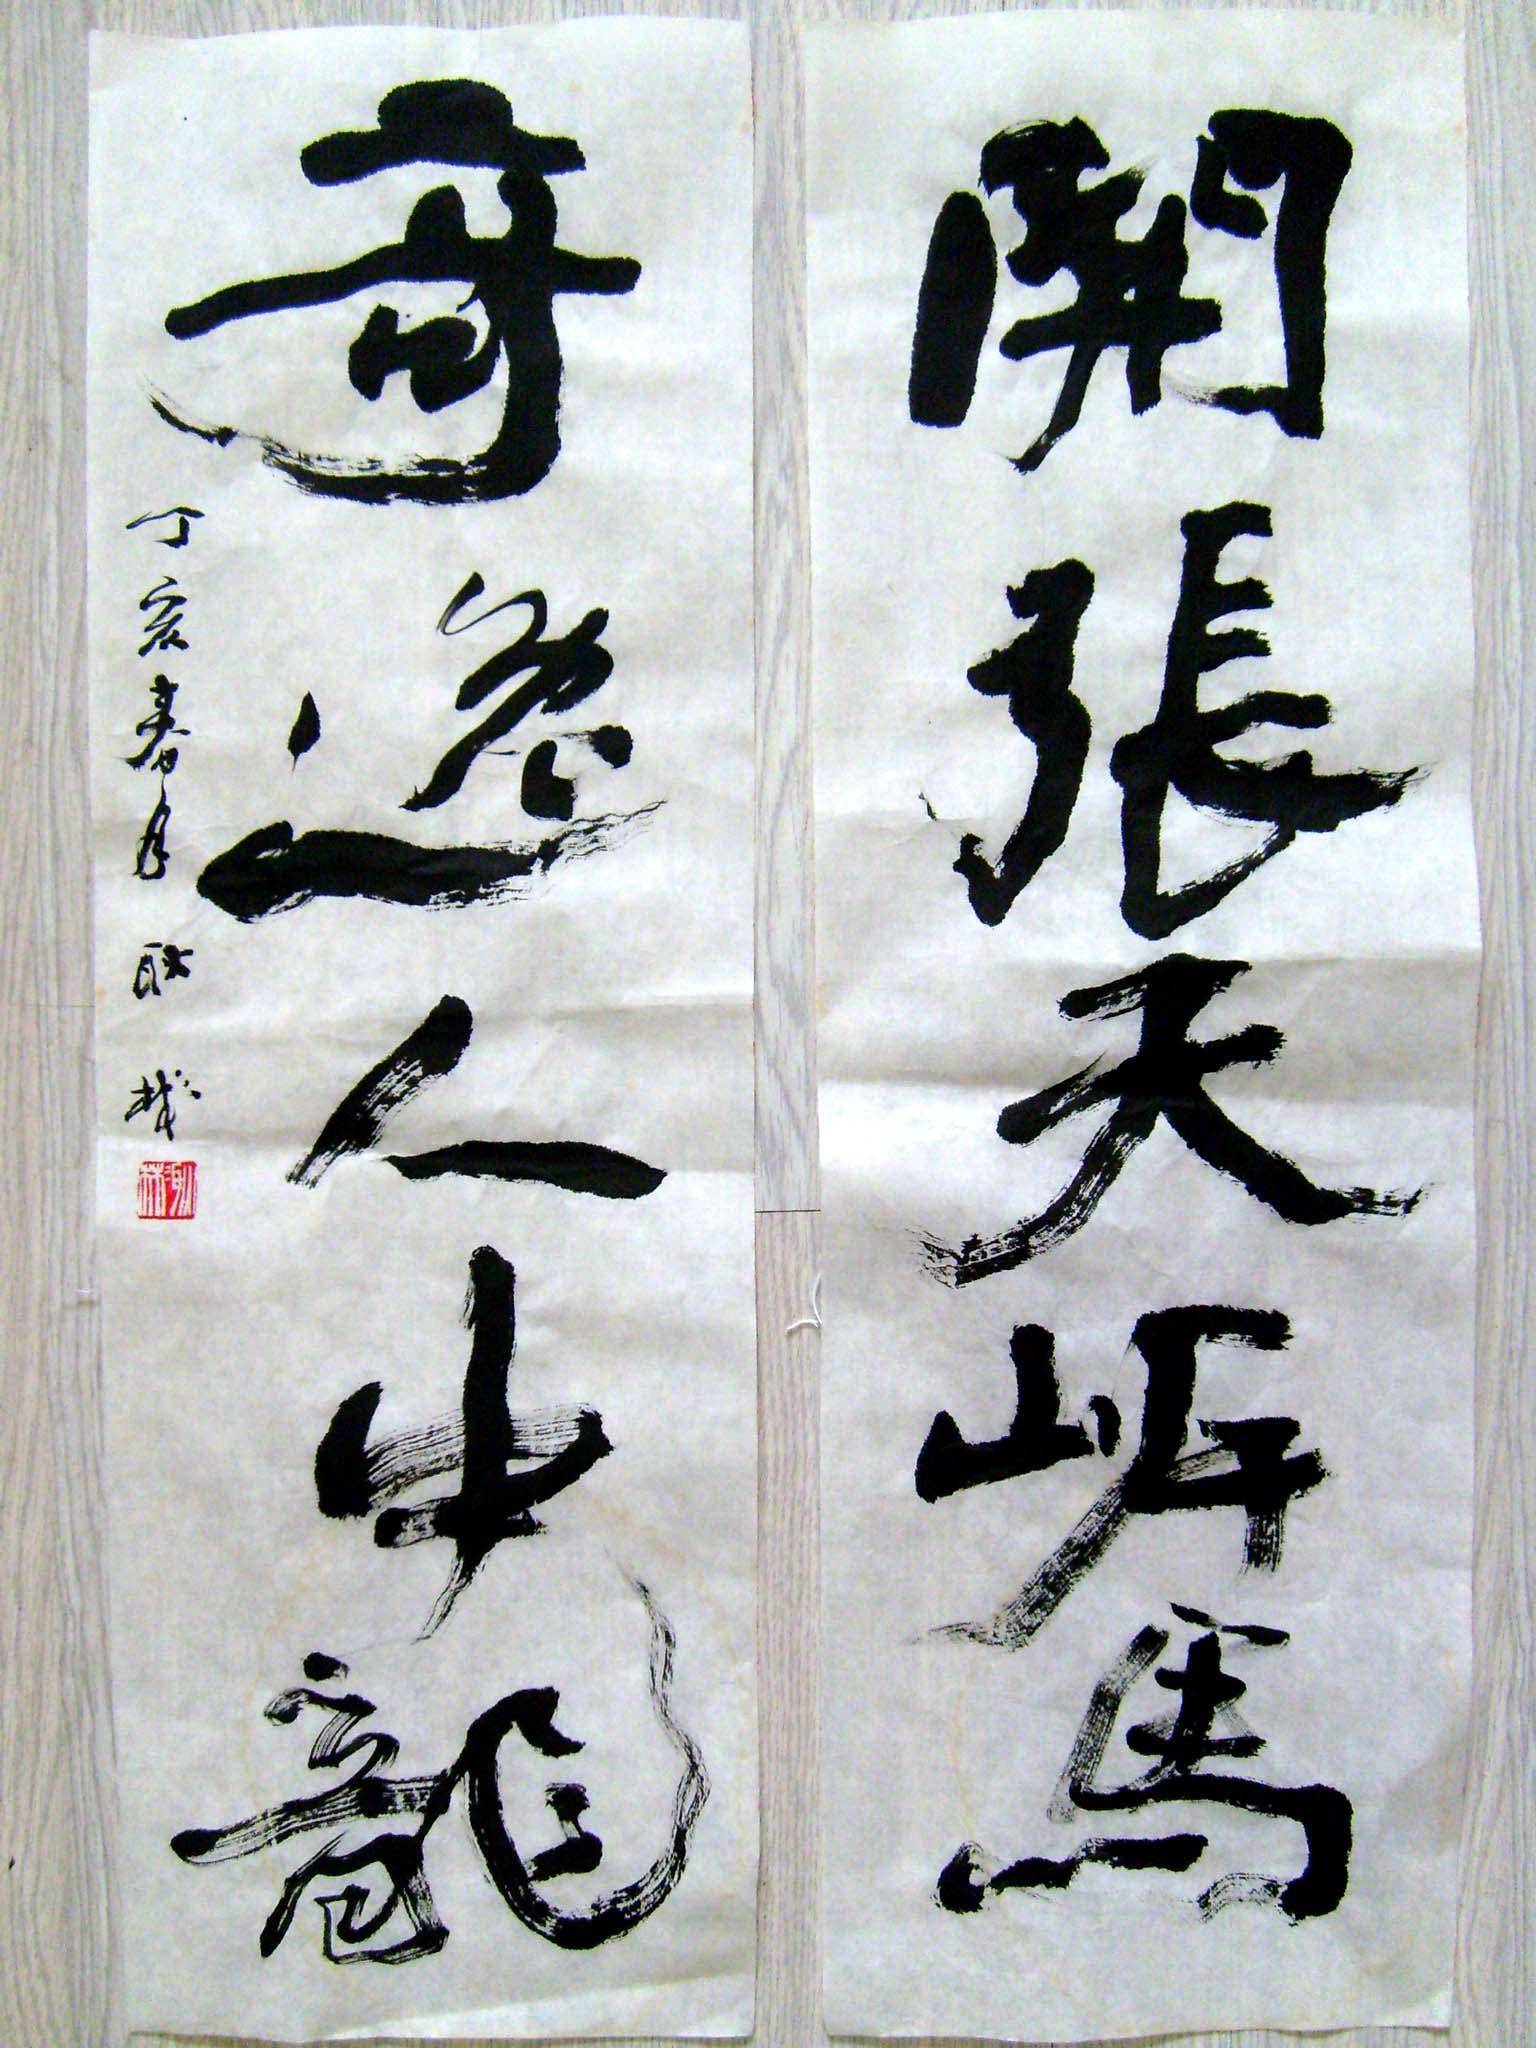 開張天岸馬
奇逸人中龍
丁亥春月